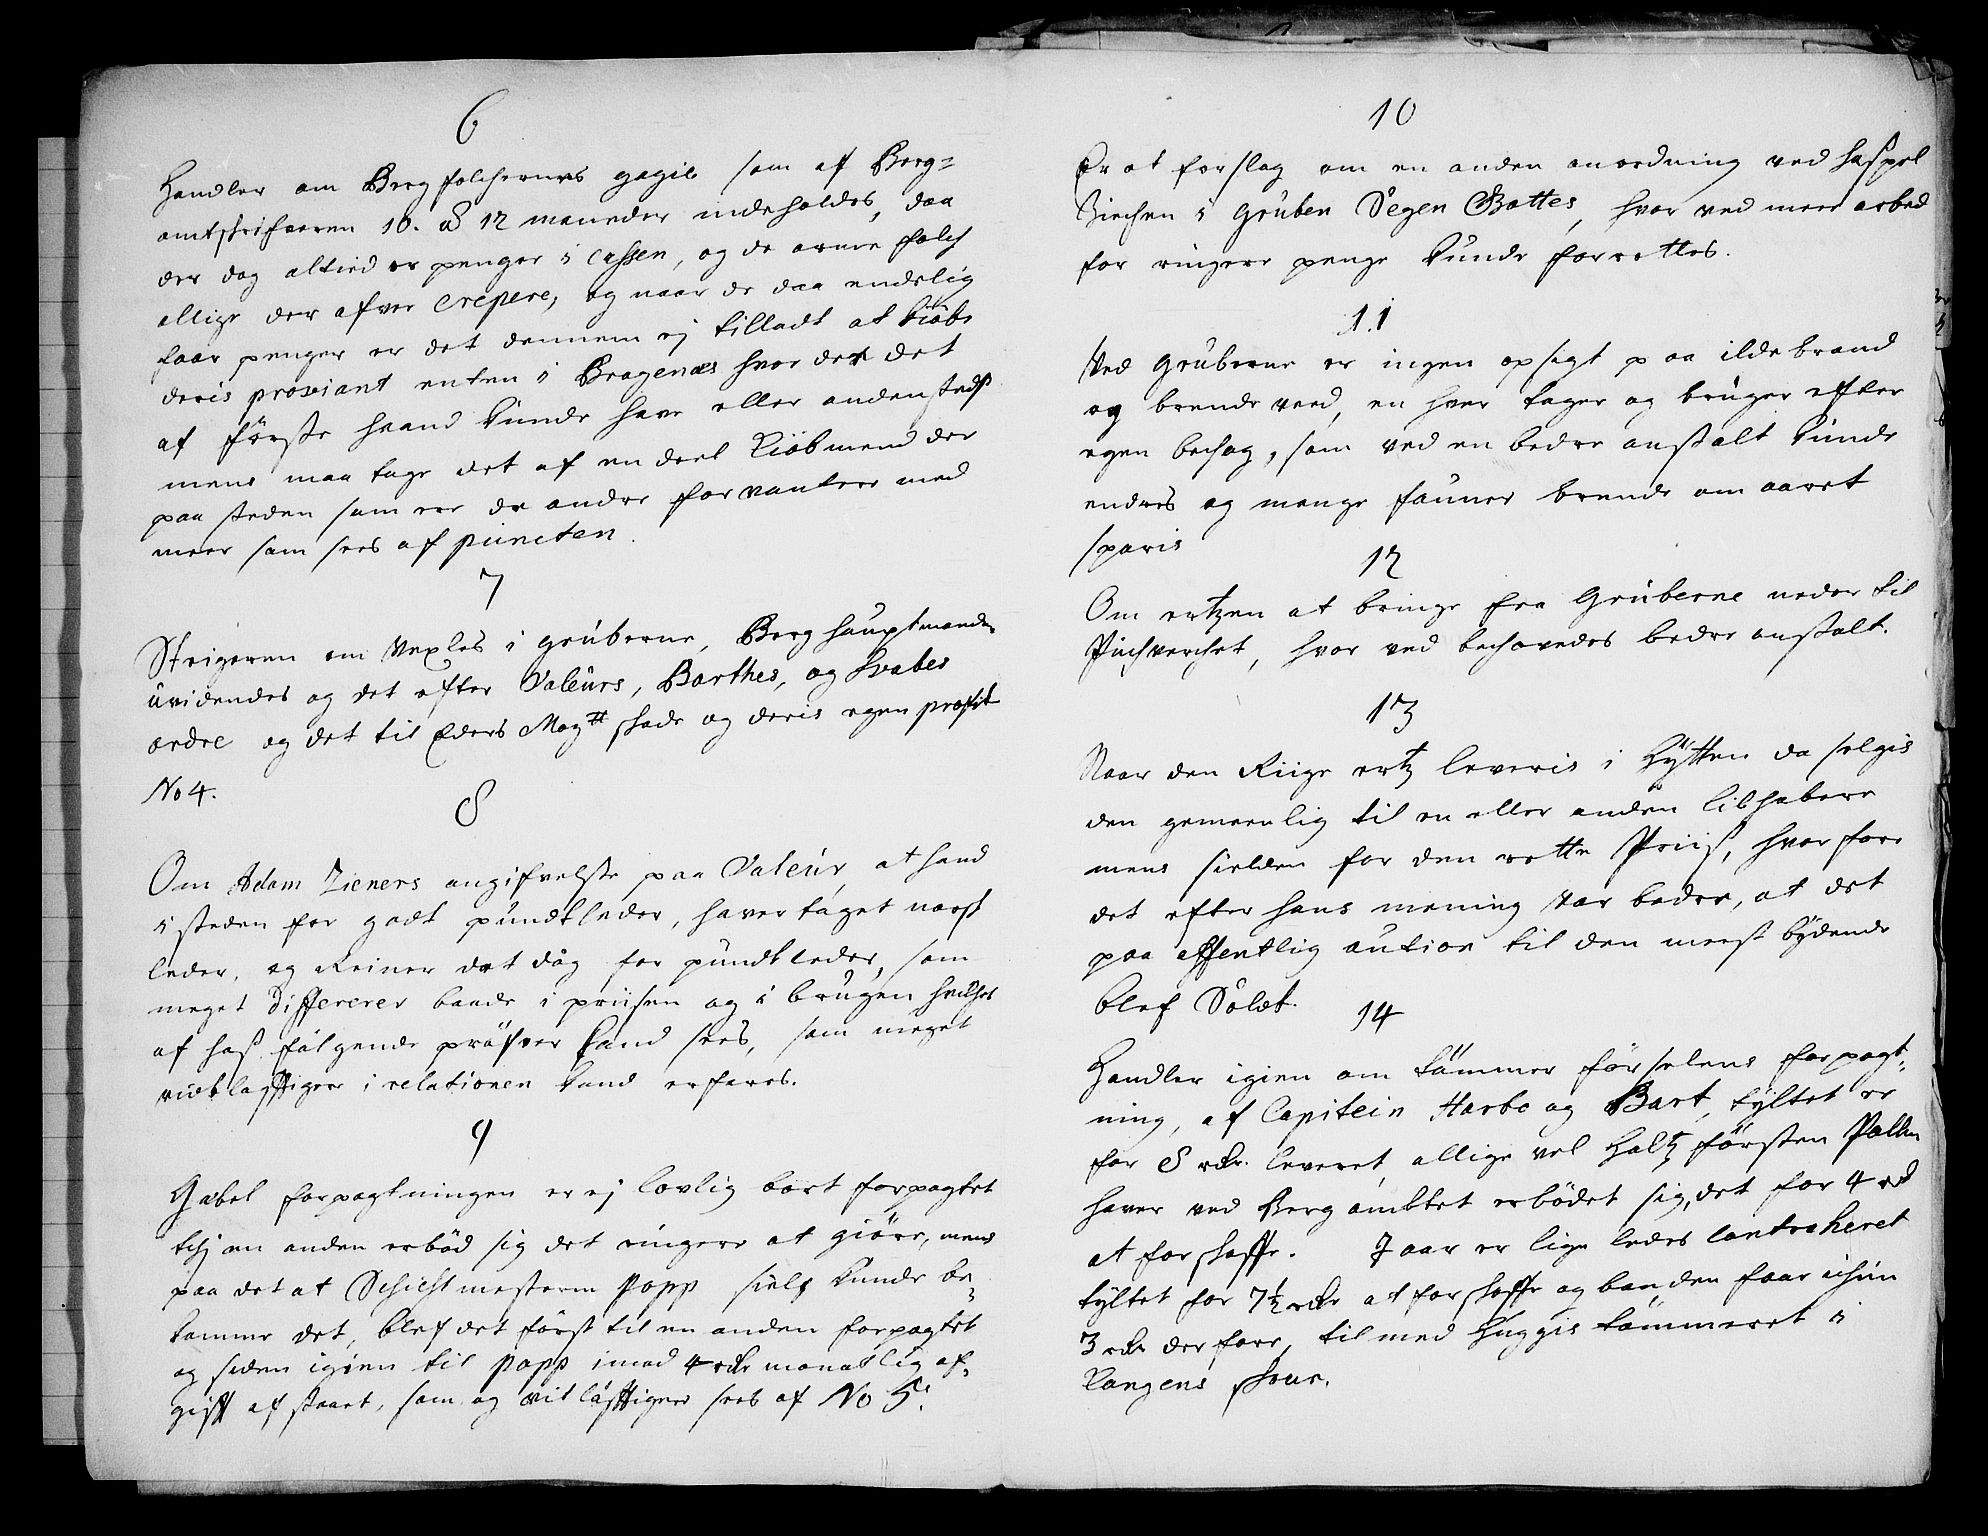 6
Handler om Bergfolchernes gagie som af Berg=
amtskrifveren 10. á 12 maneder indeholdes, daa
der dog altied er penger i Cassen, og de arme folch
allige der afver Crepere, og naar de daa endelig
faar penger er det dennem ej tilladt at kiöbe
deris proviant enten i Bragenæs hvor de det
af förste haand kunde have eller andensteds
mens maa tage det af en deel Kiöbmend der
paa steden som ere de andre forvanter med
meer som sees af puncten.
7
Steigeren om vexles i gruberne, Berghauptmanden
uvidendes og det efter Valeurs, Barthes, og Svabes
ordre og det til Eders May.tt skade og deris egen profit
No 4.
8
Om Adam Zieners angifvelse paa Valeur, at hand
i steden for godt pundtleder, haver taget norsk
leder, og Reiner det dog for pundtleder, som
meget differerer baade i priisen og i brugen hvilket
af hos fölgende pröfver kand sees, som meget
vidtlöfftigere i relationen kand erfares.
9
Gebel forpagtningen er ej lovlig bort forpagtet
thj en anden erböd sig det ringere at giöre, mens
paa det at Schichtmesteren Popp sielf kunde be=
komme det, blef det först til en anden forpagtet
og siden igien til Popp imod 4 rdr monatlig af=
gifft afstaaet, som og vitlöfftigere sees af No 5.
10
Er et forslag om en anden anordning ved haspel
Ziechen i Gruben Segen Gottes, hvor ved meer arbed
for ringere penge kunde forrettes.
11
Ved Gruberne er ingen opsigt paa ildebrand
og brende veed, en hver tager og bruger efter
egen behag, som ved en bedre anstalt kunde
endres og mange faune brende om aaret
sparis
12
Om ertzen at bringe fra Gruberne neder til
Puchverchet, hvor ved behovedes bedre anstalt.
13
Naar den Riige ertz leveris i Hytten da selgis
den gemeenlig til en eller anden liebhabere
mens sielden for den rette Priis, hvor fore
det efter hans mening var bedre, at det
paa offentlig aution til den meest bydende
blef Soldt.
14
Handler igien om tömmer förselens forpagt=
ning, af Capitein Harbo og Bart, tyltet er
for 8 rdr. leveret, allige vel Holtz försten Pallu
haver ved Bergambtet erbödet sig, det for 4 rd
at forskaffe. I aar er lige ledes Contraheret
tyltet for 7½ rdr at forskaffe og bonden faar ichun
3 rdr der fore, til med huggis tömmeret i
Kongens skove.